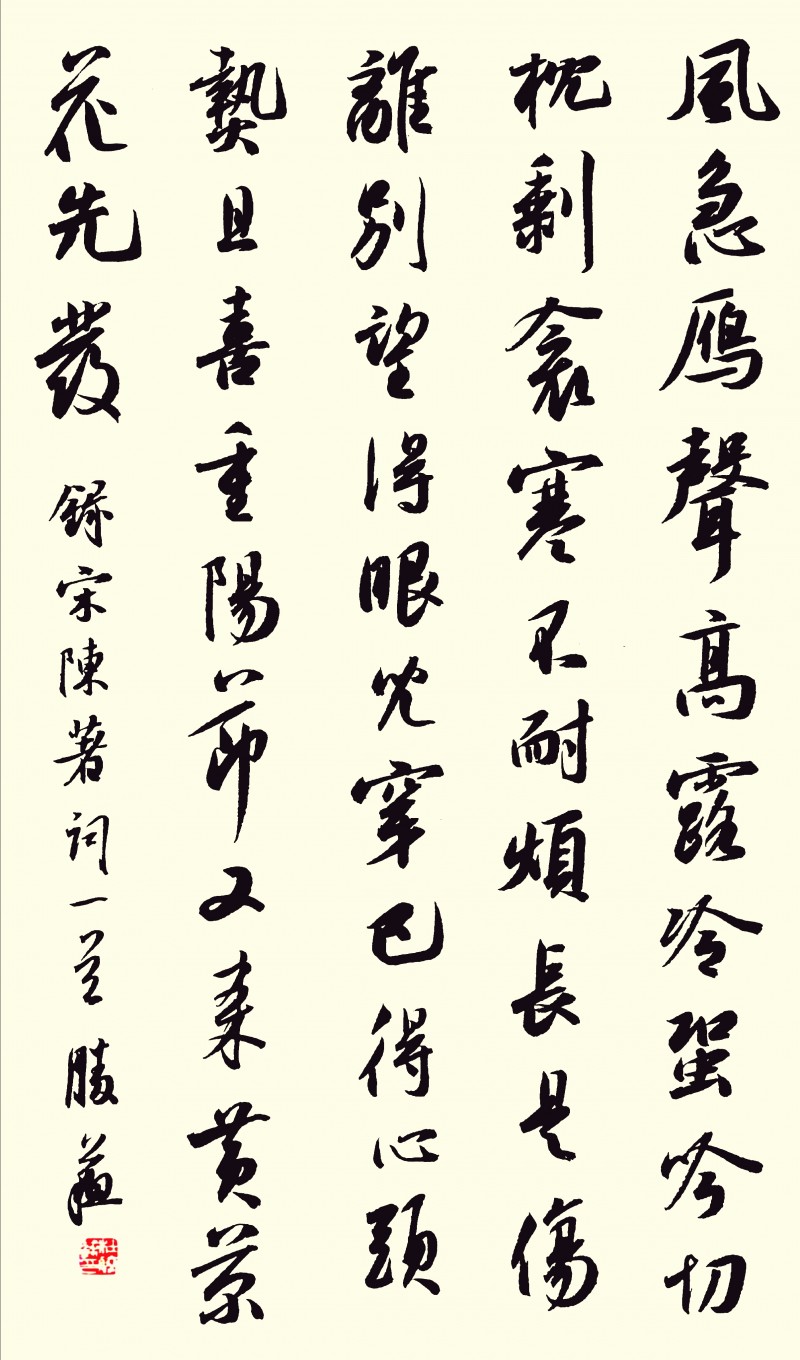 風急鴈聲高露冷蛩吟切
枕剩衾寒不耐煩長是傷
離別望得眼兒穿巴得心頭
熱且喜重陽節又來黃菊
花先發 錄宋陳著詞一首 勝